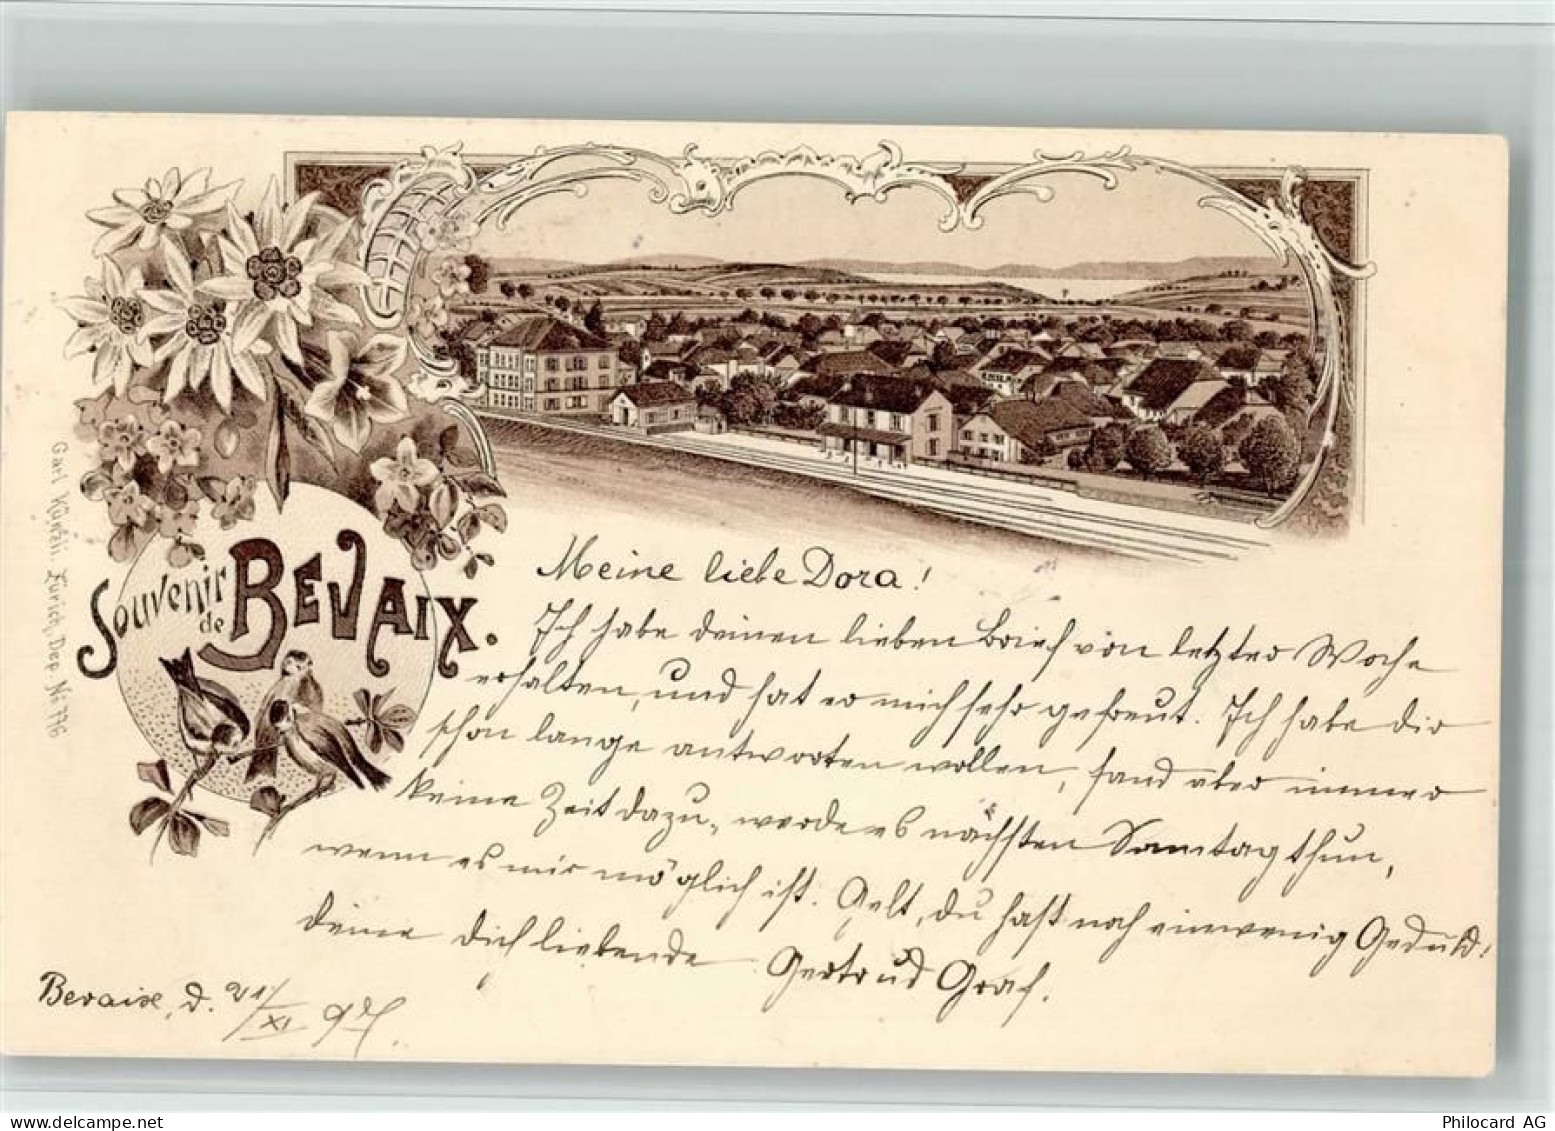 Souvenir
de
BEVAIX.
Carl Künzli, Zürich, Dep. No 776
Meine liebe Dora!
Ich habe deinen lieben Brief von letzter Woche
erhalten, und hat er mich sehr gefreut. Ich habe dir
schon lange antworten wollen, fand aber immer
keine Zeit dazu, werde es nächsten Samstag thun,
wenn es mir möglich ist. Gelt, du hast noch ein wenig Geduld!
deine dich liebende Gertrud Graf.
Bevaix, d. 21/XI 97.
delcampe.net
Philocard AG